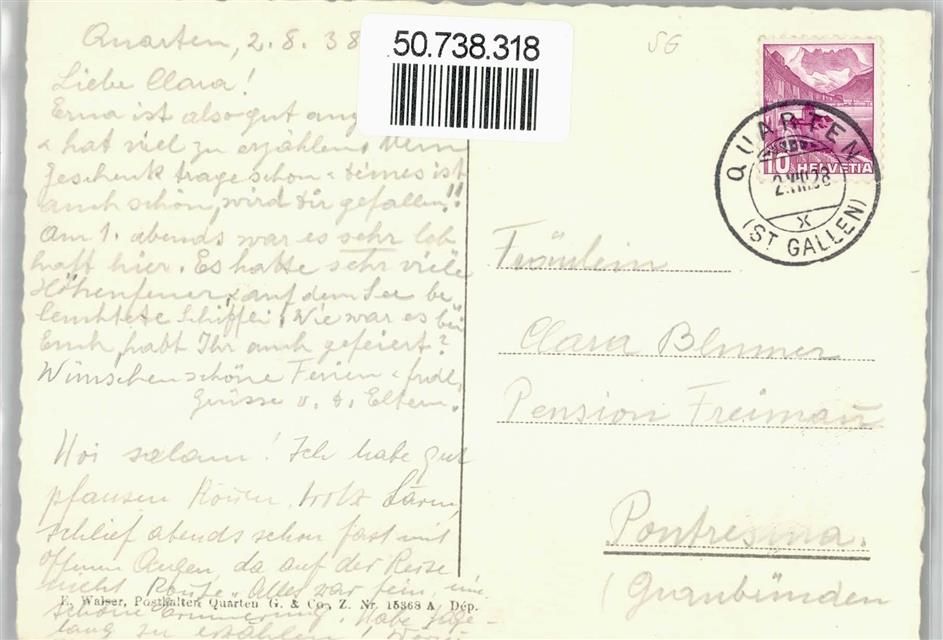 Quarten, 2.8.38
50.738.318
SG
Liebe Clara!
Erna ist also gut
& hat viel zu erzählen. Mein
Geschenk trage schon & deines ist
auch schön, wird dir gefallen!!
Am 1. abends war es sehr leb
haft hier. Es hatte sehr viele
Höhenfeuer & auf dem See be
leuchtete Schiffli. Wie war es bei
Euch, habt Ihr auch gefeiert?
Wünschen schöne Ferien & frdl.
Grüsse v. d. Eltern.
Hoi salam! Ich habe gut
pfausen können, trotz Lärm,
schlief abends schon fast mit
offenen Augen, da auf der Reise
nicht "Alles war fein,
schöne Erinnerung. Habe
lang zu erzählen!
E. Walser, Posthalter, Quarten G. & Co., Z. Nr. 15368 A Dép.
10 HELVETIA
QUARTEN
2.VIII.38
X
(ST GALLEN)
Fräulein
Clara Blumer
Pension Freimann
Pontresina.
(Graubünden